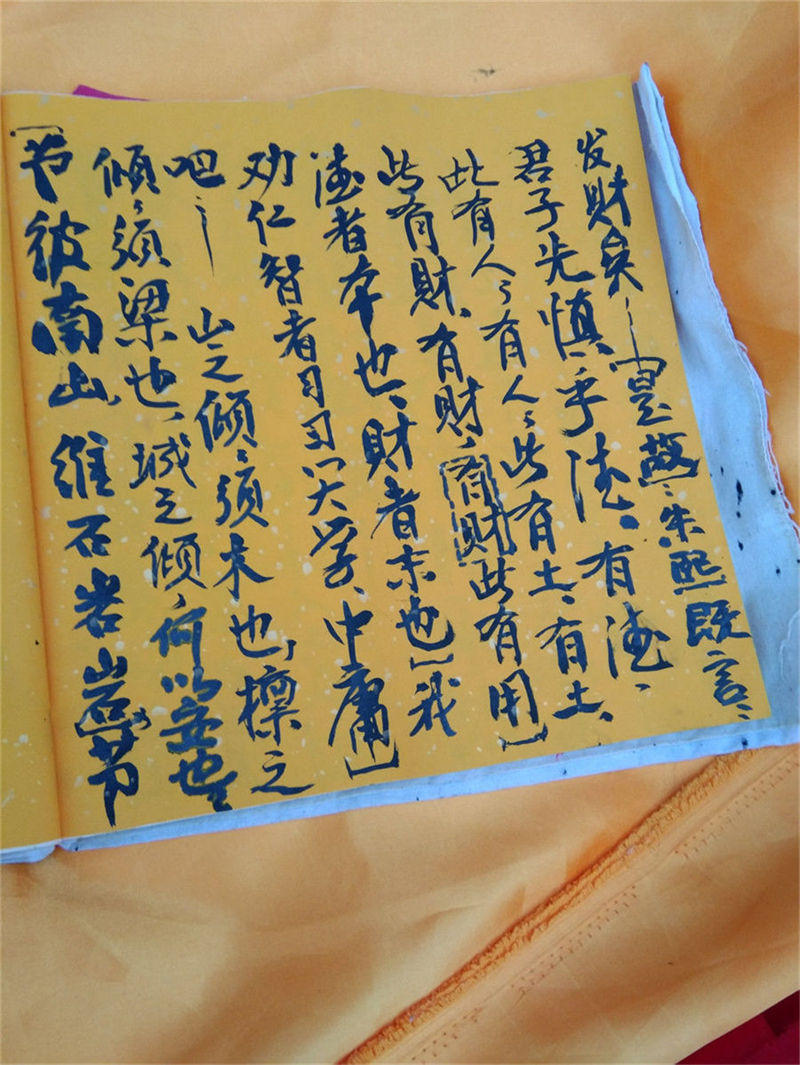 发财矣—「是故、朱熙既言、
君子先慎、乎德、有德、
此有人、有人、此有土、有土、
此有財、有財、有财此有用」
德者本也、財者末也」我
劝仁智者习习「大学、中庸」
吧—山之倾、须木也、檩之
倾、须梁也、城之倾、何以安也
「节彼南山、维石岩岩、节